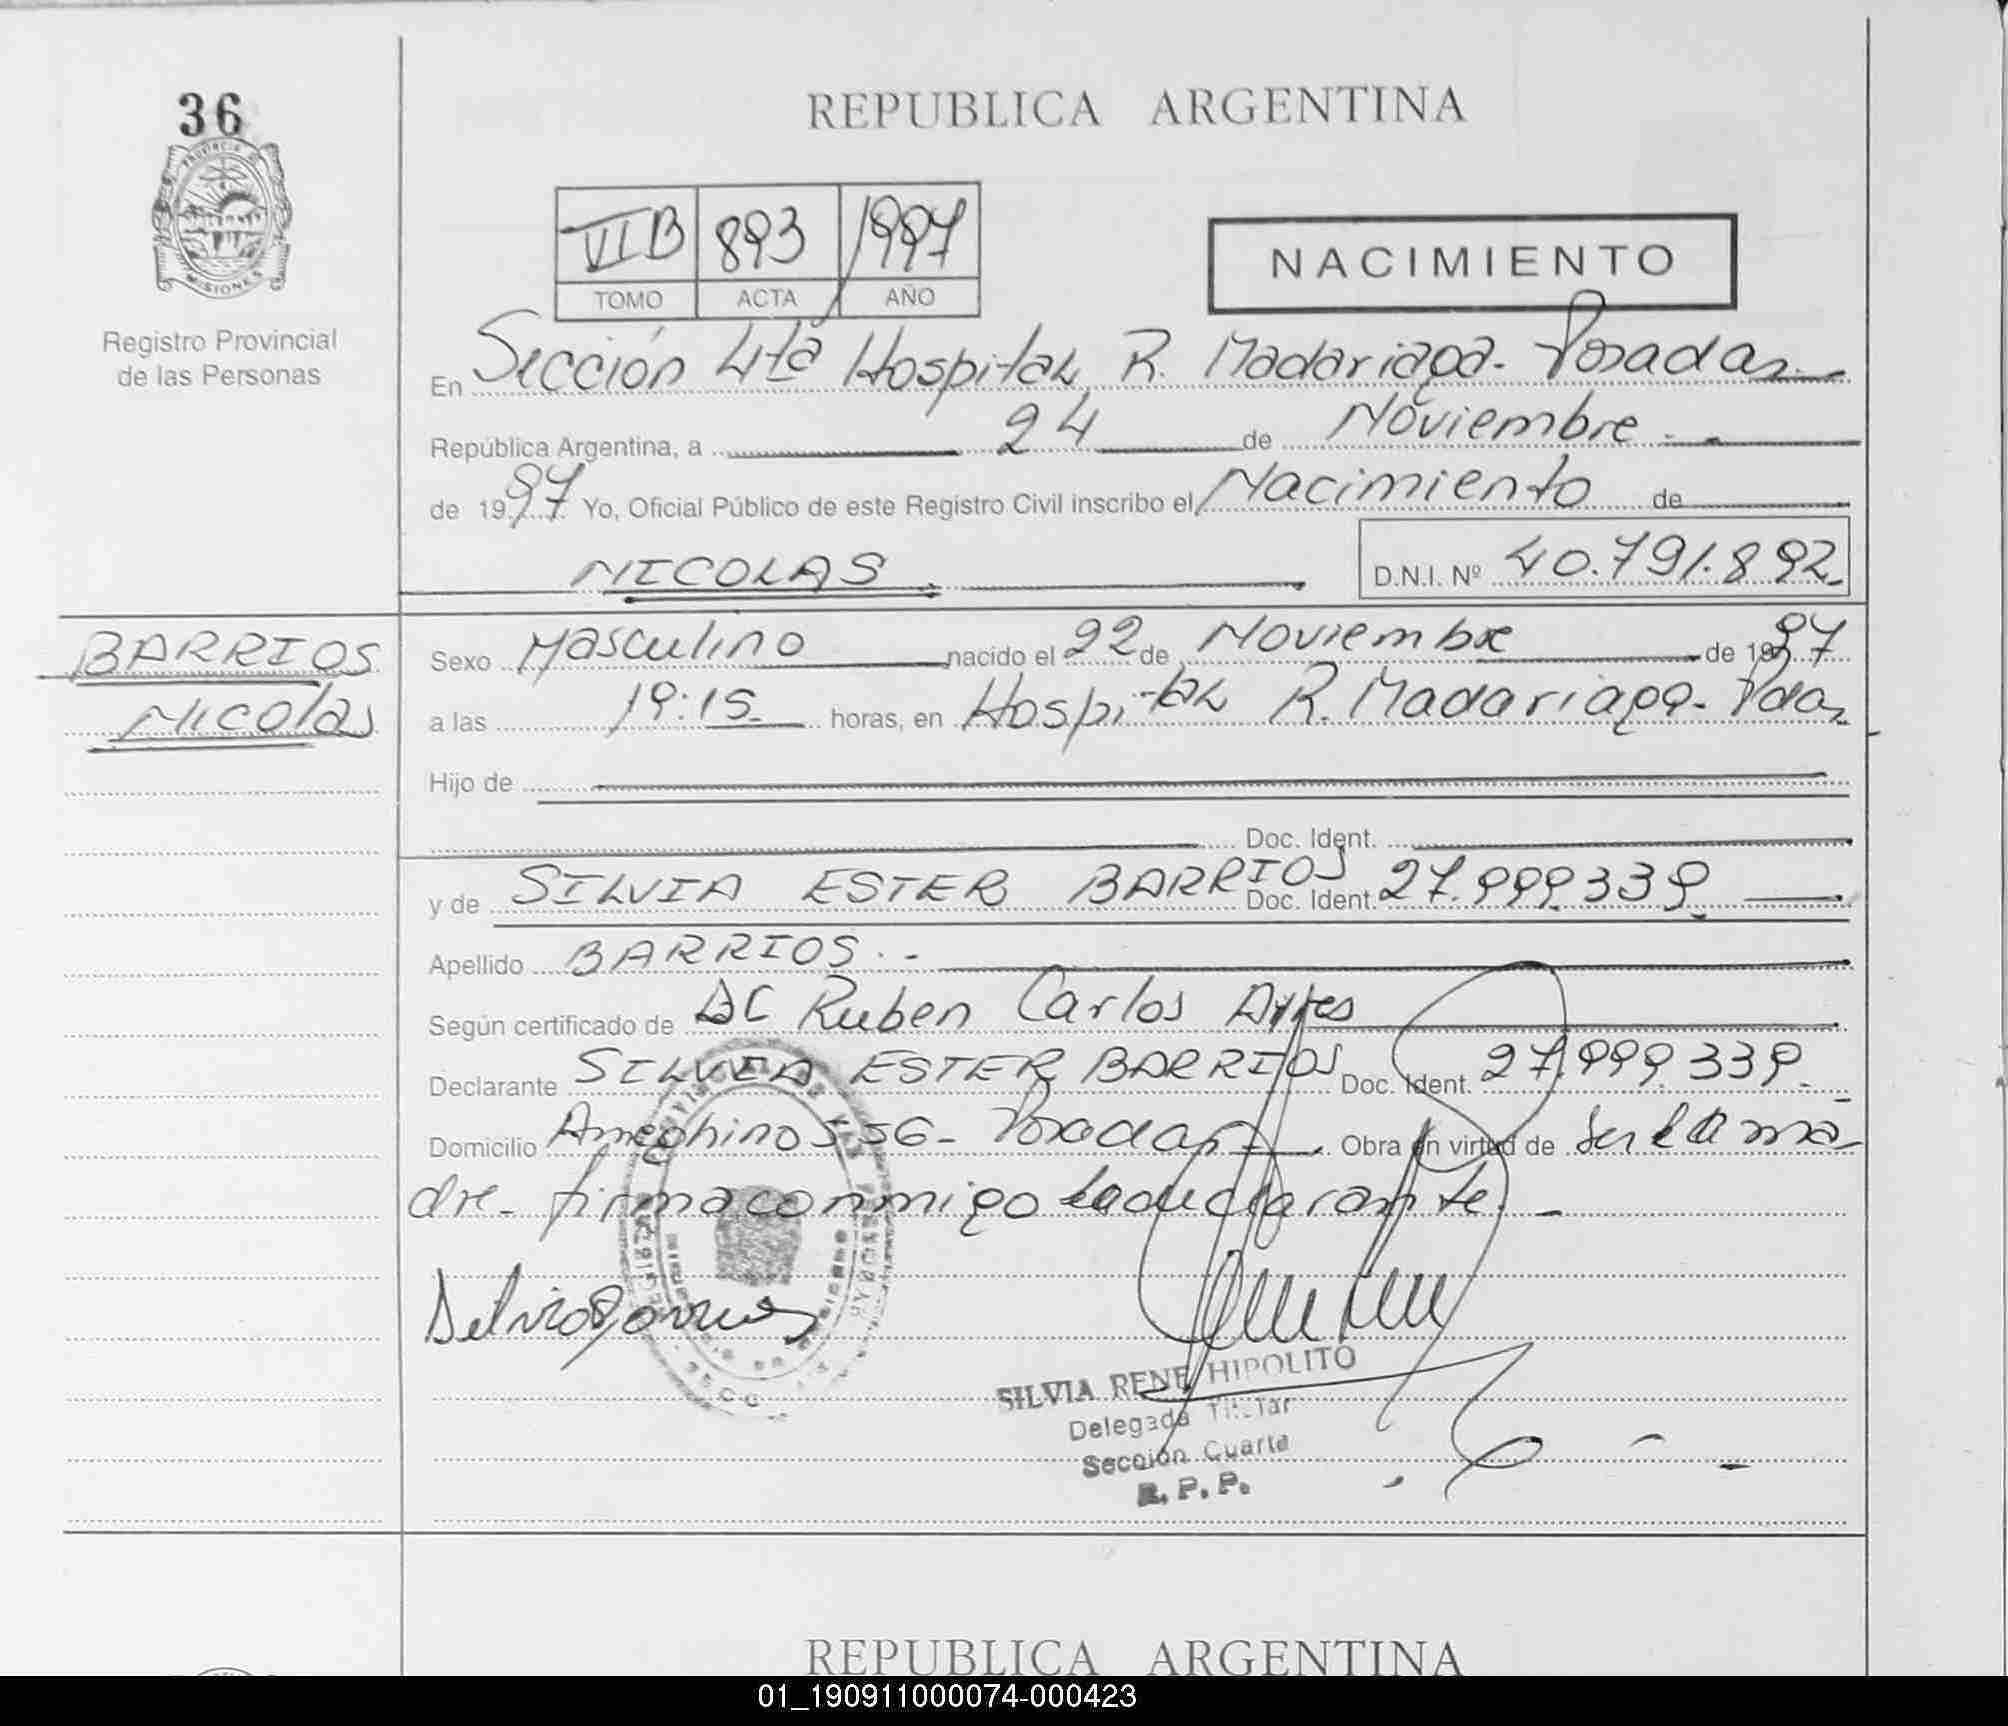 36
PROVINCIA DE
MISIONES
Registro Provincial
de las Personas
REPUBLICA ARGENTINA
VII B 893 1997
TOMO ACTA AÑO
NACIMIENTO
En Sección 4ta Hospital R. Madariaga - Posadas
República Argentina, a 24 de Noviembre
de 1997 Yo, Oficial Público de este Registro Civil inscribo el Nacimiento de
NICOLAS D.N.I. Nº 40.791.892
BARRIOS
Nicolas
Sexo Masculino nacido el 22 de Noviembre de 1997
a las 19:15 horas, en Hospital R. Madariaga - Pdas
Hijo de
Doc. Ident.
y de SILVIA ESTER BARRIOS Doc. Ident. 27.999.339
Apellido BARRIOS
Según certificado de Ruben Carlos
Declarante SILVIA ESTER BARRIOS Doc. Ident. 27.999.339
Domicilio Ameghino 556 - Posadas Obra en virtud de ser la ma
dre - firma conmigo la declarante
SILVIA RENE HIPOLITO
Delegada Titular
Sección Cuarta
R. P. P.
REPUBLICA ARGENTINA
01_190911000074-000423